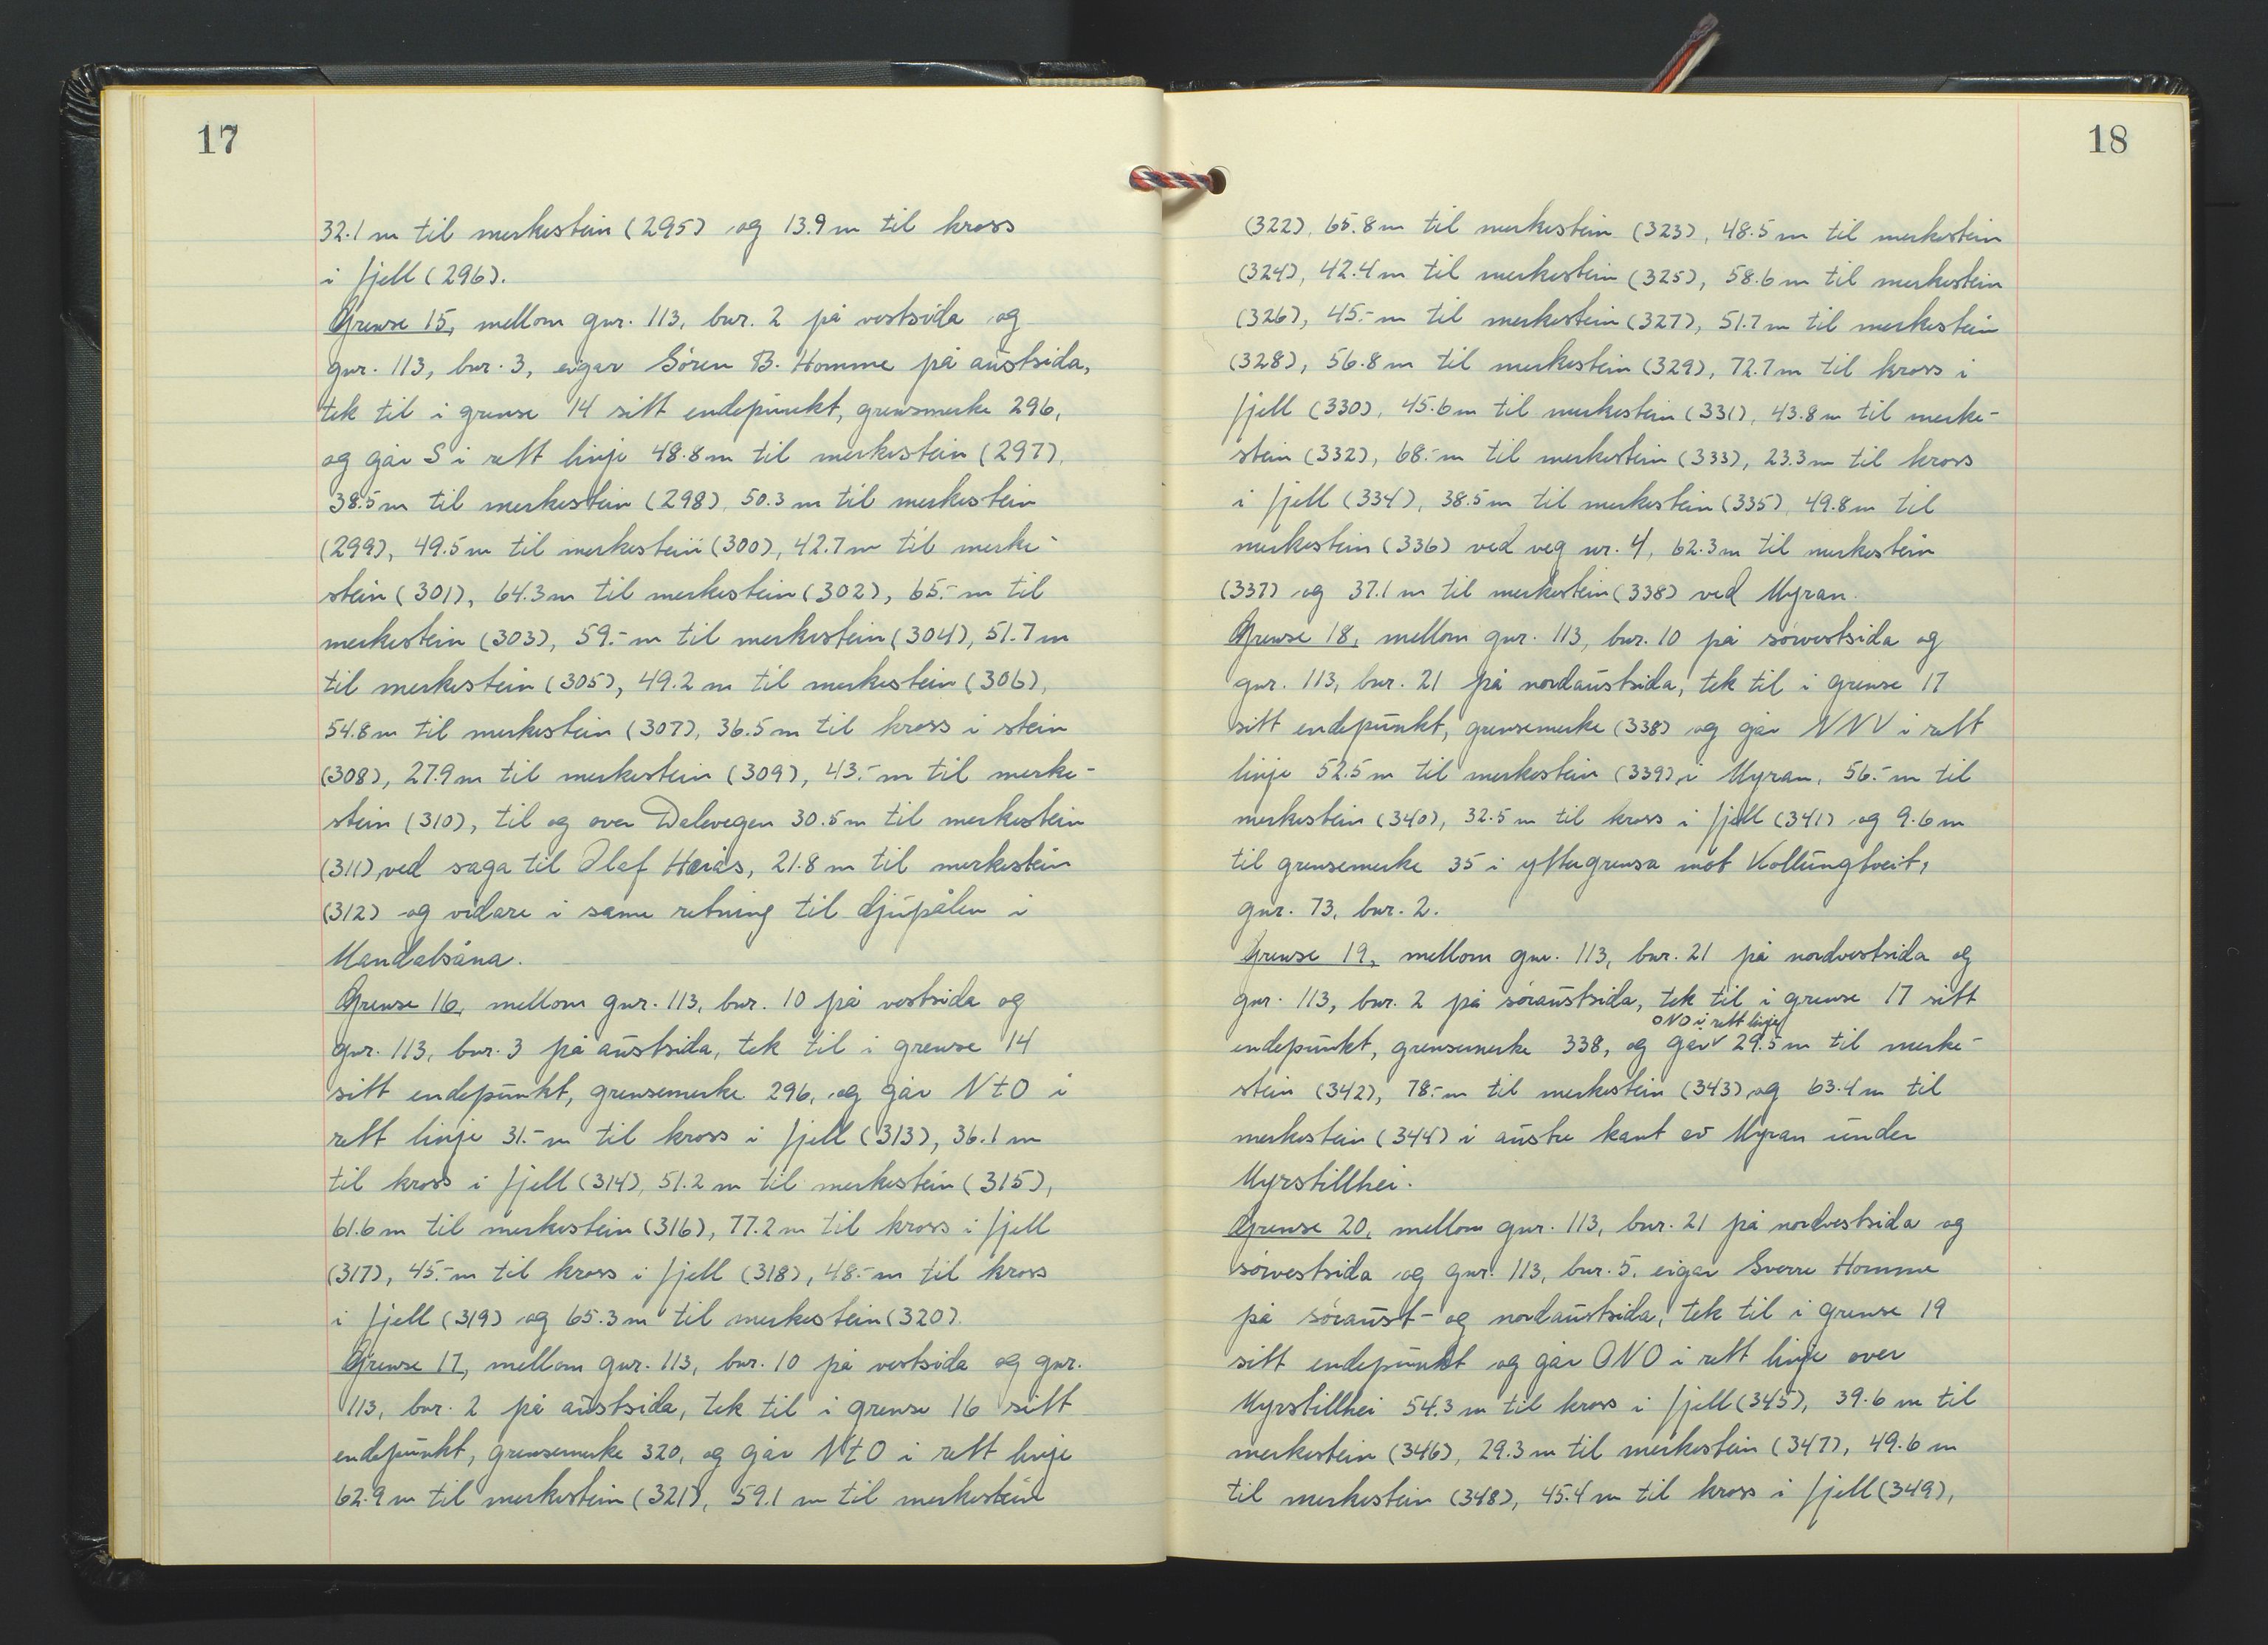 17
32.1 m til merkestein (295) og 13.9 m til kross
i fjell (296).
Grense 15, mellom gnr. 113, bnr. 2 på vestsida og
gnr. 113, bnr. 3, eigar Sören B. Homme på austsida,
tek til i grense 14 sitt endepunkt, grensmerke 296,
og går S i rett linje 48.8 m til merkestein (297),
38.5 m til merkestein (298), 50.3 m til merkestein
(299), 49.5 m til merkestein (300), 42.7 m til merke-
stein (301), 64.3 m til merkestein (302), 65.- m til
merkestein (303), 59.- m til merkestein (304), 51.7 m
til merkestein (305), 49.2 m til merkestein (306),
54.8 m til merkestein (307), 36.5 m til kross i stein
(308), 27.9 m til merkestein (309), 43.- m til merke-
stein (310), til og over Dalevegen 30.5 m til merkestein
(311), ved saga til Olaf Heiås, 21.8 m til merkestein
(312) og vidare i same retning til djupålen i
Mandalsåna.
Grense 16, mellom gnr. 113, bnr. 10 på vestsida og
gnr. 113, bnr. 3 på austsida, tek til i grense 14
sitt endepunkt, grensemerke 296, og går N t O i
rett linje 31.- m til kross i fjell (313), 36.1 m
til kross i fjell (314), 51.2 m til merkestein (315),
61.6 m til merkestein (316), 77.2 m til kross i fjell
(317), 45.- m til kross i fjell (318), 48.- m til kross
i fjell (319) og 65.3 m til merkestein (320).
Grense 17, mellom gnr. 113, bnr. 10 på vestsida og gnr.
113, bnr. 2 på austsida, tek til i grense 16 sitt
endepunkt, grensemerke 320, og går N t O i rett linje
62.9 m til merkestein (321), 59.1 m til merkestein
18
(322), 65.8 m til merkestein (323), 48.5 m til merkestein
(324), 42.4 m til merkestein (325), 58.6 m til merkestein
(326), 45.- m til merkestein (327), 51.7 m til merkestein
(328), 56.8 m til merkestein (329), 72.7 m til kross i
fjell (330), 45.6 m til merkestein (331), 43.8 m til merke-
stein (332), 68.- m til merkestein (333), 23.3 m til kross
i fjell (334), 38.5 m til merkestein (335), 49.8 m til
merkestein (336) ved veg nr. 4, 62.3 m til merkestein
(337) og 37.1 m til merkestein (338) ved Myran.
Grense 18, mellom gnr. 113, bnr. 10 på sørvestsida og
gnr. 113, bnr. 21 på nordaustsida, tek til i grense 17
sitt endepunkt, grensemerke (338) og går NNV i rett
linje 52.5 m til merkestein (339) i Myran, 56.- m til
merkestein (340), 32.5 m til kross i fjell (341) og 9.6 m
til grensemerke 35 i yttergrensa mot Kollungtveit,
gnr. 73, bnr. 2.
Grense 19, mellom gnr. 113, bnr. 21 på nordvestsida og
gnr. 113, bnr. 2 på søraustsida, tek til i grense 17 sitt
ONO i rett linje
endepunkt, grensemerke 338, og går 29.5 m til merke-
stein (342), 78.- m til merkestein (343) og 63.4 m til
merkestein (344) i austre kant av Myran under
Myrstillhei.
Grense 20, mellom gnr. 113, bnr. 21 på nordvestsida og
sørvestsida og gnr. 113, bnr. 5, eigar Sverre Homme
på søraust- og nordaustsida, tek til i grense 19
sitt endepunkt og går ONO i rett linje over
Myrstillhei 54.3 m til kross i fjell (345), 39.6 m til
merkestein (346), 29.3 m til merkestein (347), 49.6 m
til merkestein (348), 45.4 m til kross i fjell (349),